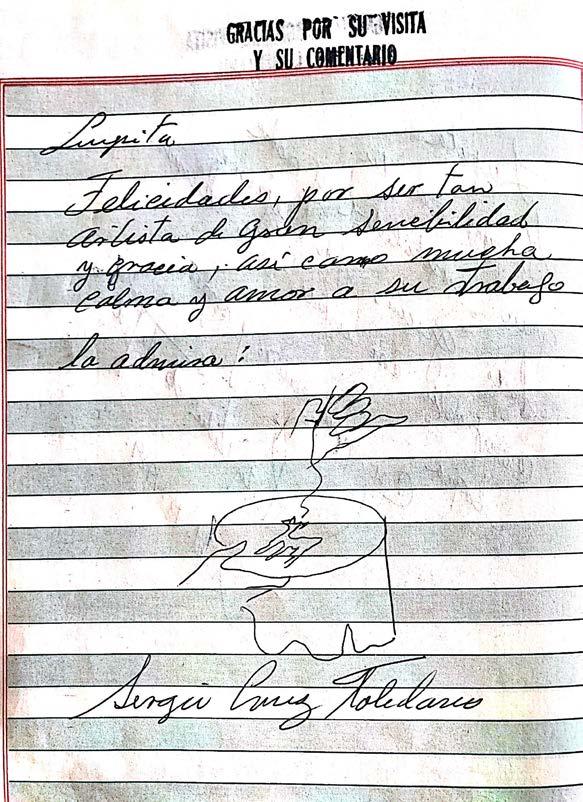 GRACIAS POR SU VISITA
Y SU COMENTARIO
Lupita
Felicidades, por ser tan
artista de gran sencibilidad
y gracia, así como mucha
calma y amor a su trabajo
la admira:
Sergio Cruz Toledano